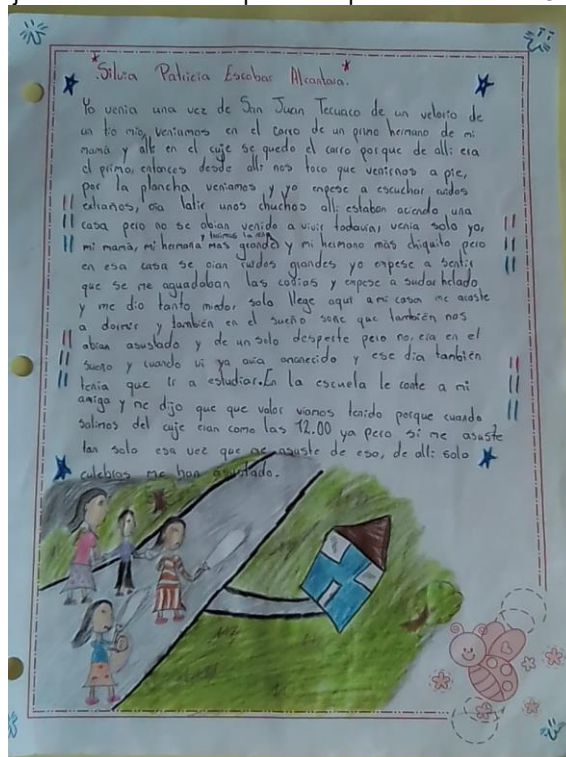 Silvia Patricia Escobar Alcantara.
Yo venia una vez de San Juan Tecuaco de un velorio de
un tio mio, veniamos en el carro de un primo hermano de mi
mamá y alli en el cuje se quedo el carro porque de alli era
el primo, entonces desde alli nos toco que venirnos a pie,
por la plancha veniamos y yo empese a escuchar ruidos
extraños, oia latir unos chuchos alli estaban aciendo una
casa pero no se abian venido a vivir todavia, venia solo yo,
mi mamá, mi hermana mas grande y mi hermano más chiquito pero
en esa casa se oian ruidos grandes yo empese a sentir
que se me aguadaban las codios y empese a sudar helado
y me dio tanto miedo, solo llege aqui a mi casa me acoste
a dormir y también en el sueño soñe que también nos
abian asustado y de un solo desperte pero no, era en el
sueño y cuando vi ya avia amanecido y ese dia también
tenia que ir a estudiar. En la escuela le conte a mi
amiga y me dijo que que valor viamos tenido porque cuando
salimos del cuje eran como las 12.00 ya pero si me asuste
tan solo esa vez que me asuste de eso, de alli solo
culebras me han asustado.